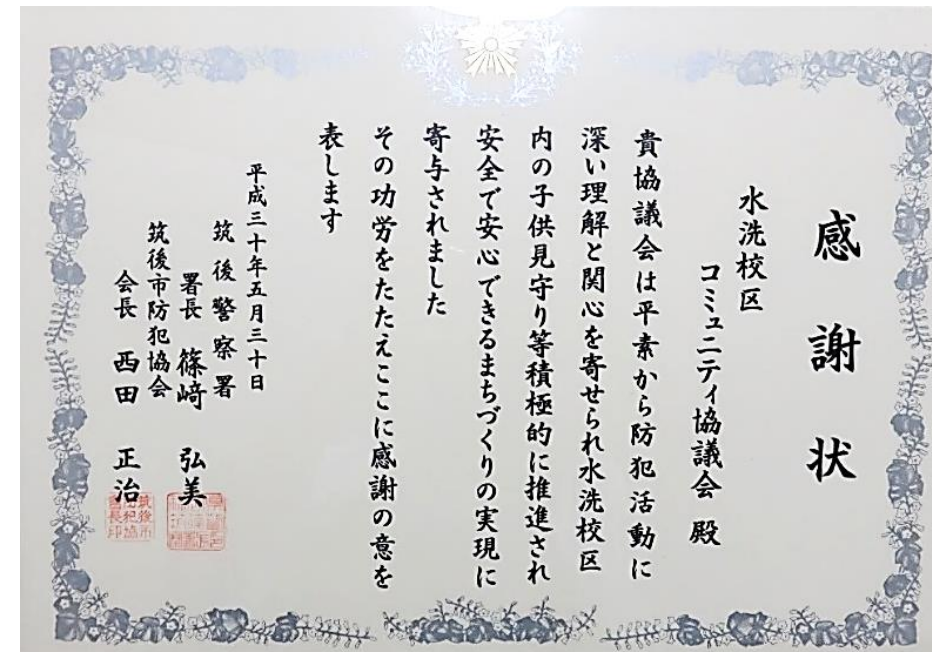 感謝状
水洗校区
コミュニティ協議会 殿
貴協議会は平素から防犯活動に
深い理解と関心を寄せられ水洗校区
内の子供見守り等積極的に推進され
安全で安心できるまちづくりの実現に
寄与されました
その功労をたたえここに感謝の意を
表します
平成三十年五月三十日
筑後警察署
署長 篠﨑 弘美
筑後市防犯協会
会長 西田 正治